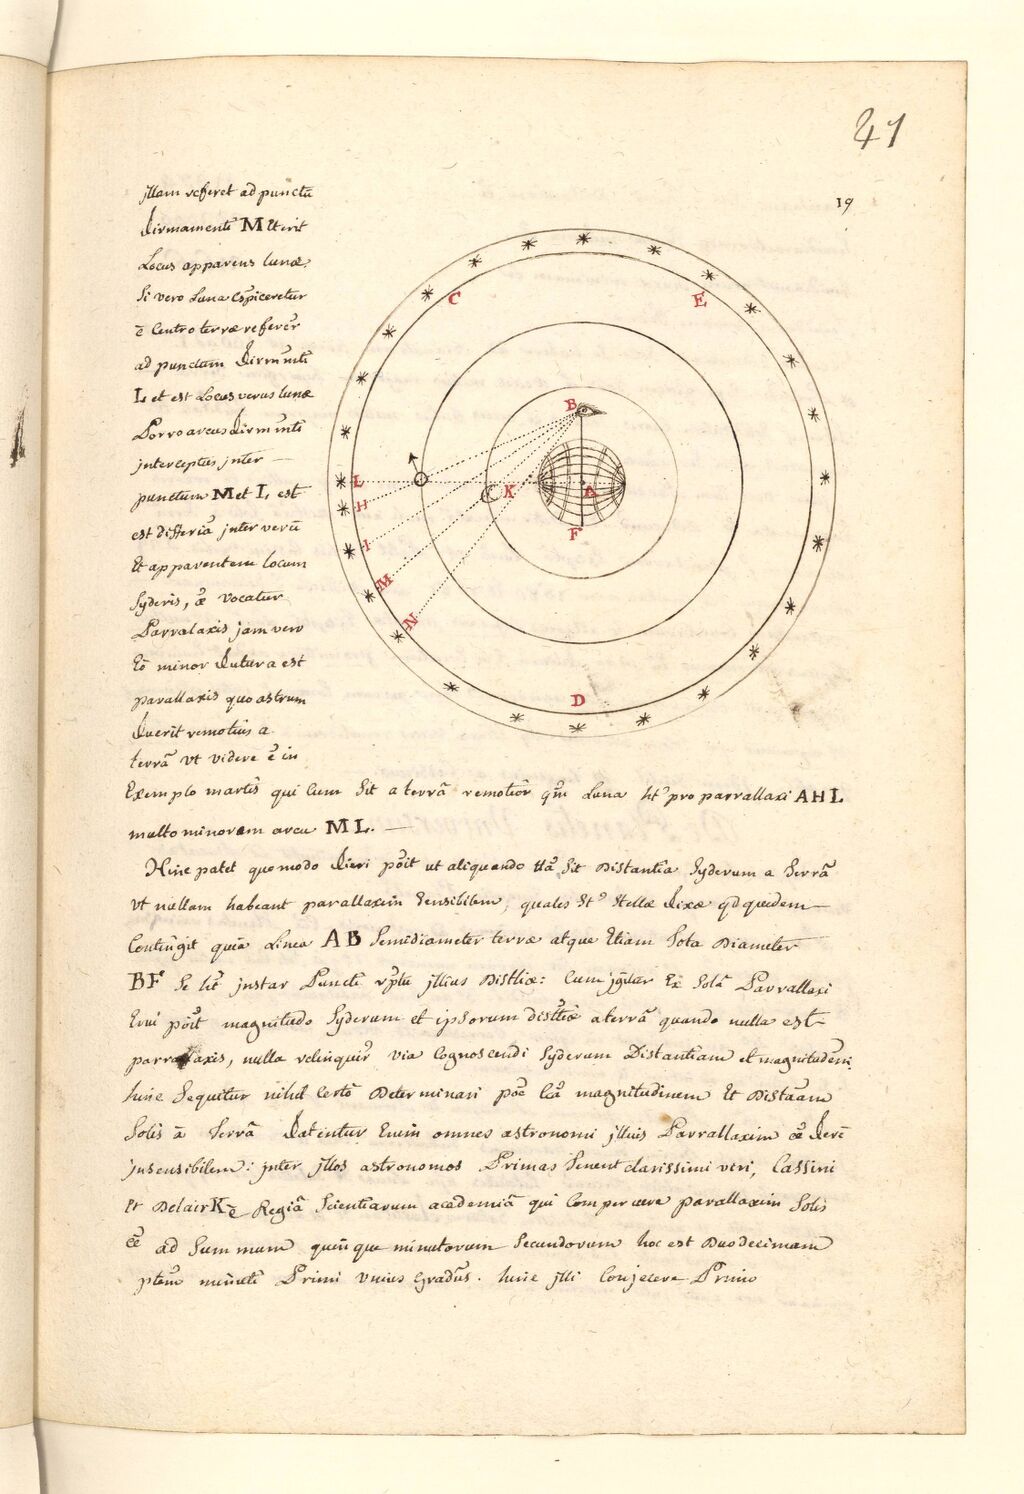 41
19
illam referet ad punctū
firmamenti M et erit
Locus apparens lunæ.
Si vero Luna Cspiceretur
ē Centro terræ referer̄
ad punctum firm̄nti
L et est Locus verus lunæ
Porro arcus firm̄nti
interceptus inter —
punctum M et L, est
est differīa inter verū
Et apparentem locum
Syderis, æ vocatur
Parralaxis jam vero
Eō minor futura est
parallaxis quo astrum
fuerit remotius a
terrā ut videre ē in
C
E
B
L
H
K
A
I
F
M
N
D
Exemplo martis qui Cum Sit a terrā remotior qm̄ Luna ht pro parrallaxi AHL
multo minorem arcu ML. —
Hinc patet quomodo fieri pōit ut aliquando tā sit Distantia Syderum a Terrā
Ut nullam habeant parallaxim Sensibilem, quales st Stellæ fixæ qd quidem —
Contingit quia Linea AB Semidiameter terræ atque Etiam tota Diameter
BF Se ht instar Puncti rptu illius Disttiæ: Cum igitur Ex Solā Parrallaxi
Erui pōit magnitudo Syderum et ipsorum disttiæ a terrā quando nulla est
parrallaxis, nulla relinquir via Cognoscendi Syderum Distantiam et magnitudēm.
hinc Sequitur nihil Certō Determinari pōe Cā magnitudinem Et Distāam
Solis ā Terrā fatentur Enim omnes astronomi illius Parrallaxim eē ferē
insensibilem: inter illos astronomos Primas tenent clarissimi viri, Cassini
Et Delair ē Regiā Scientiarum academiā qui Comperuere parallaxim Solis
eē ad Summum quinque minutorum Secundorum hoc est Duodecimam
ptem minuti Primi Unius Gradus. hinc illi Conjecere Primo